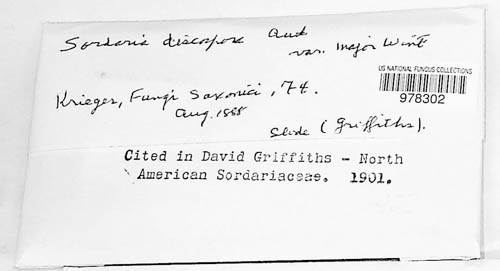 Sordaria discospora Aud
var. major Wint
US NATIONAL FUNGUS COLLECTIONS
978302
Krieger, Fungi Saxonici, 74.
Aug. 1888
Slide (Griffiths).
Cited in David Griffiths - North
American Sordariaceae. 1901.